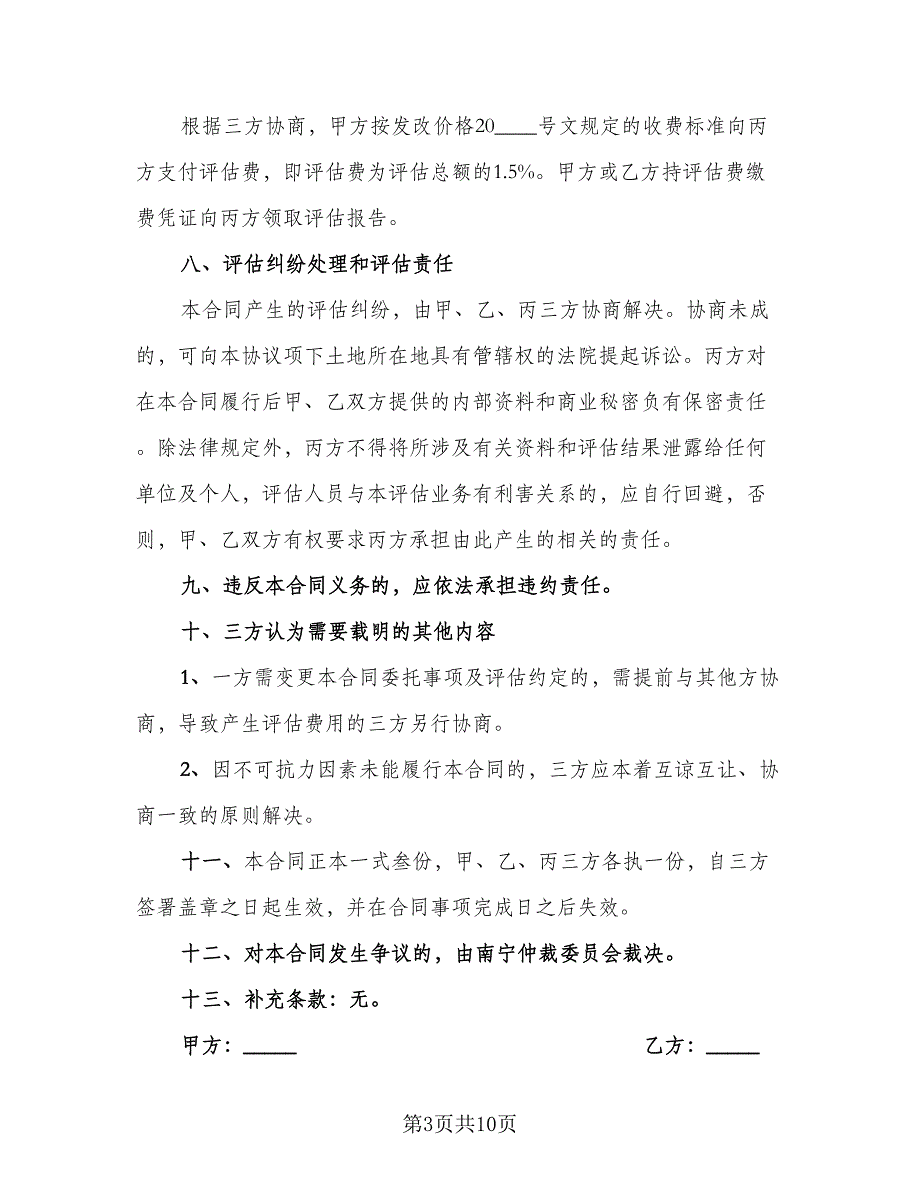 根据三方协商，甲方按发改价格20____号文规定的收费标准向丙
方支付评估费，即评估费为评估总额的1.5%。甲方或乙方持评估费缴
费凭证向丙方领取评估报告。
八、评估纠纷处理和评估责任
本合同产生的评估纠纷，由甲、乙、丙三方协商解决。协商未成
的，可向本协议项下土地所在地具有管辖权的法院提起诉讼。丙方对
在本合同履行后甲、乙双方提供的内部资料和商业秘密负有保密责任
。除法律规定外，丙方不得将所涉及有关资料和评估结果泄露给任何
单位及个人，评估人员与本评估业务有利害关系的，应自行回避，否
则，甲、乙双方有权要求丙方承担由此产生的相关的责任。
九、违反本合同义务的，应依法承担违约责任。
十、三方认为需要载明的其他内容
1、一方需变更本合同委托事项及评估约定的，需提前与其他方协
商，导致产生评估费用的三方另行协商。
2、因不可抗力因素未能履行本合同的，三方应本着互谅互让、协
商一致的原则解决。
十一、本合同正本一式叁份，甲、乙、丙三方各执一份，自三方
签署盖章之日起生效，并在合同事项完成日之后失效。
十二、对本合同发生争议的，由南宁仲裁委员会裁决。
十三、补充条款：无。
甲方：_____ 乙方：_____
第3页共10页